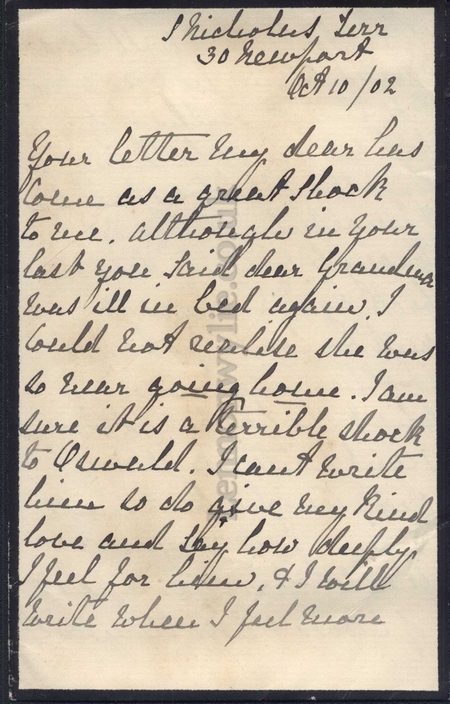 S Nicholas Terr
30 Newport
Oct 10/02
Your letter my dear has
come as a great shock
to me. although in your
last you said dear Grandma
was ill in bed again. I
could not realise she was
so near going home. I am
sure it is a terrible shock
to Oswald. I cant write
him so do give my kind
love and say how deeply
I feel for him, & I will
write when I feel more